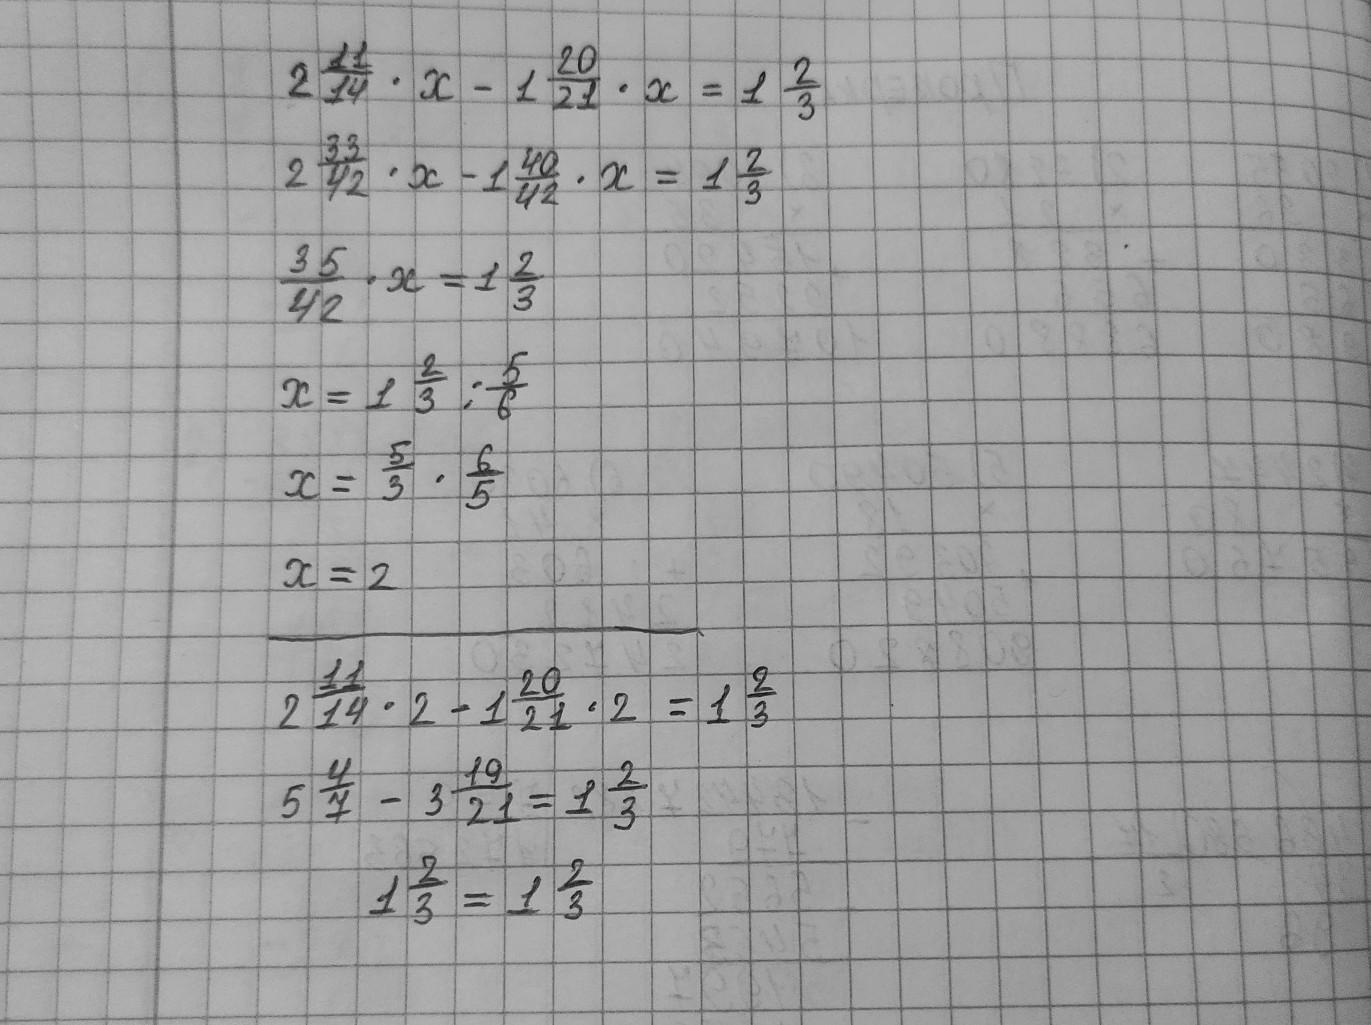 2 11/14 · x - 1 20/21 · x = 1 2/3
2 33/42 · x - 1 40/42 · x = 1 2/3
35/42 · x = 1 2/3
x = 1 2/3 : 5/6
x = 5/3 · 6/5
x = 2
2 11/14 · 2 - 1 20/21 · 2 = 1 2/3
5 4/7 - 3 19/21 = 1 2/3
1 2/3 = 1 2/3